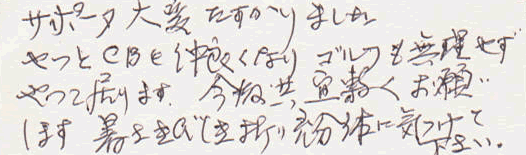 サポータ大変たすかりました
やっとCBと仲良くなり ゴルフも無理せず
やって居ります。今後共、宜敷くお願い
します 暑さきびしき折り充分体に気つけて
下さい。